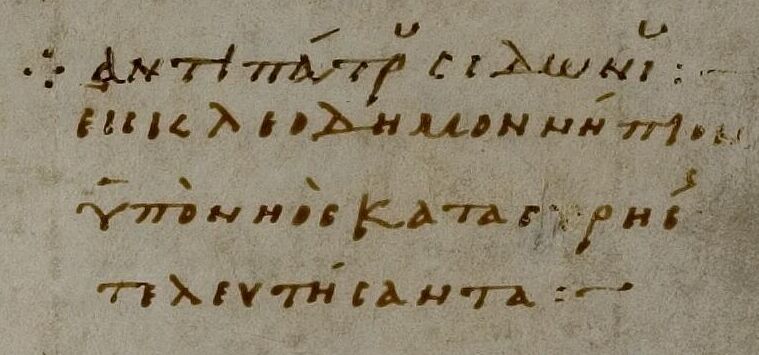 ∴ ἀντιπάτρου σιδωνίου :–
εἰς κλεόδημον νήπιον
ὑπὸ νηὸς κατασυρῆς
τελευτήσαντα :–